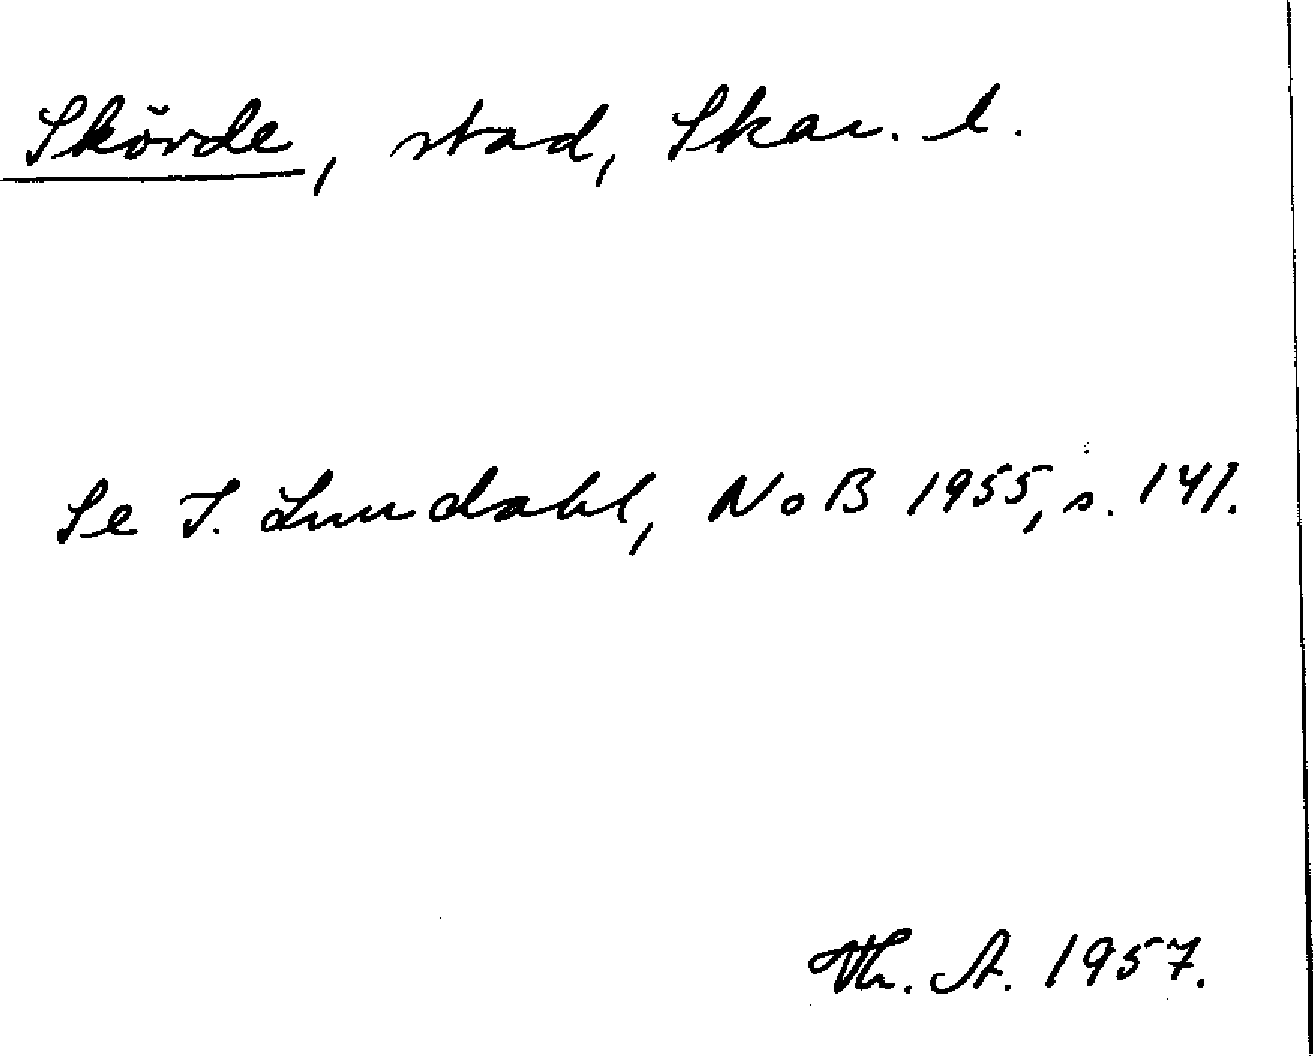 Skövde, stad, Skar. l.
Se I. Lundahl, NoB 1955, s. 141.
Th. A. 1957.